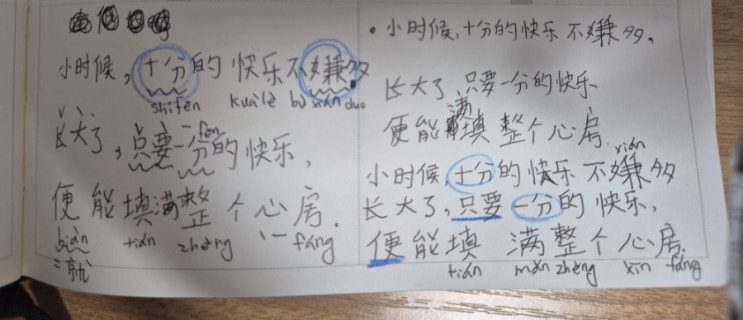 小时候,十分的快乐不嫌多
shifen kuàilè bù xián duo
长大了,只要一分的快乐,
fēn
便能填满整个心房.
biàn tián zhěng fáng
=就
• 小时候,十分的快乐不嫌多,
长大了,只要一分的快乐
便能填整个心房.
满
xián
小时候,十分的快乐不嫌多
长大了,只要一分的快乐,
便能填 满整个心房.
tián mǎn zhěng xīn fáng